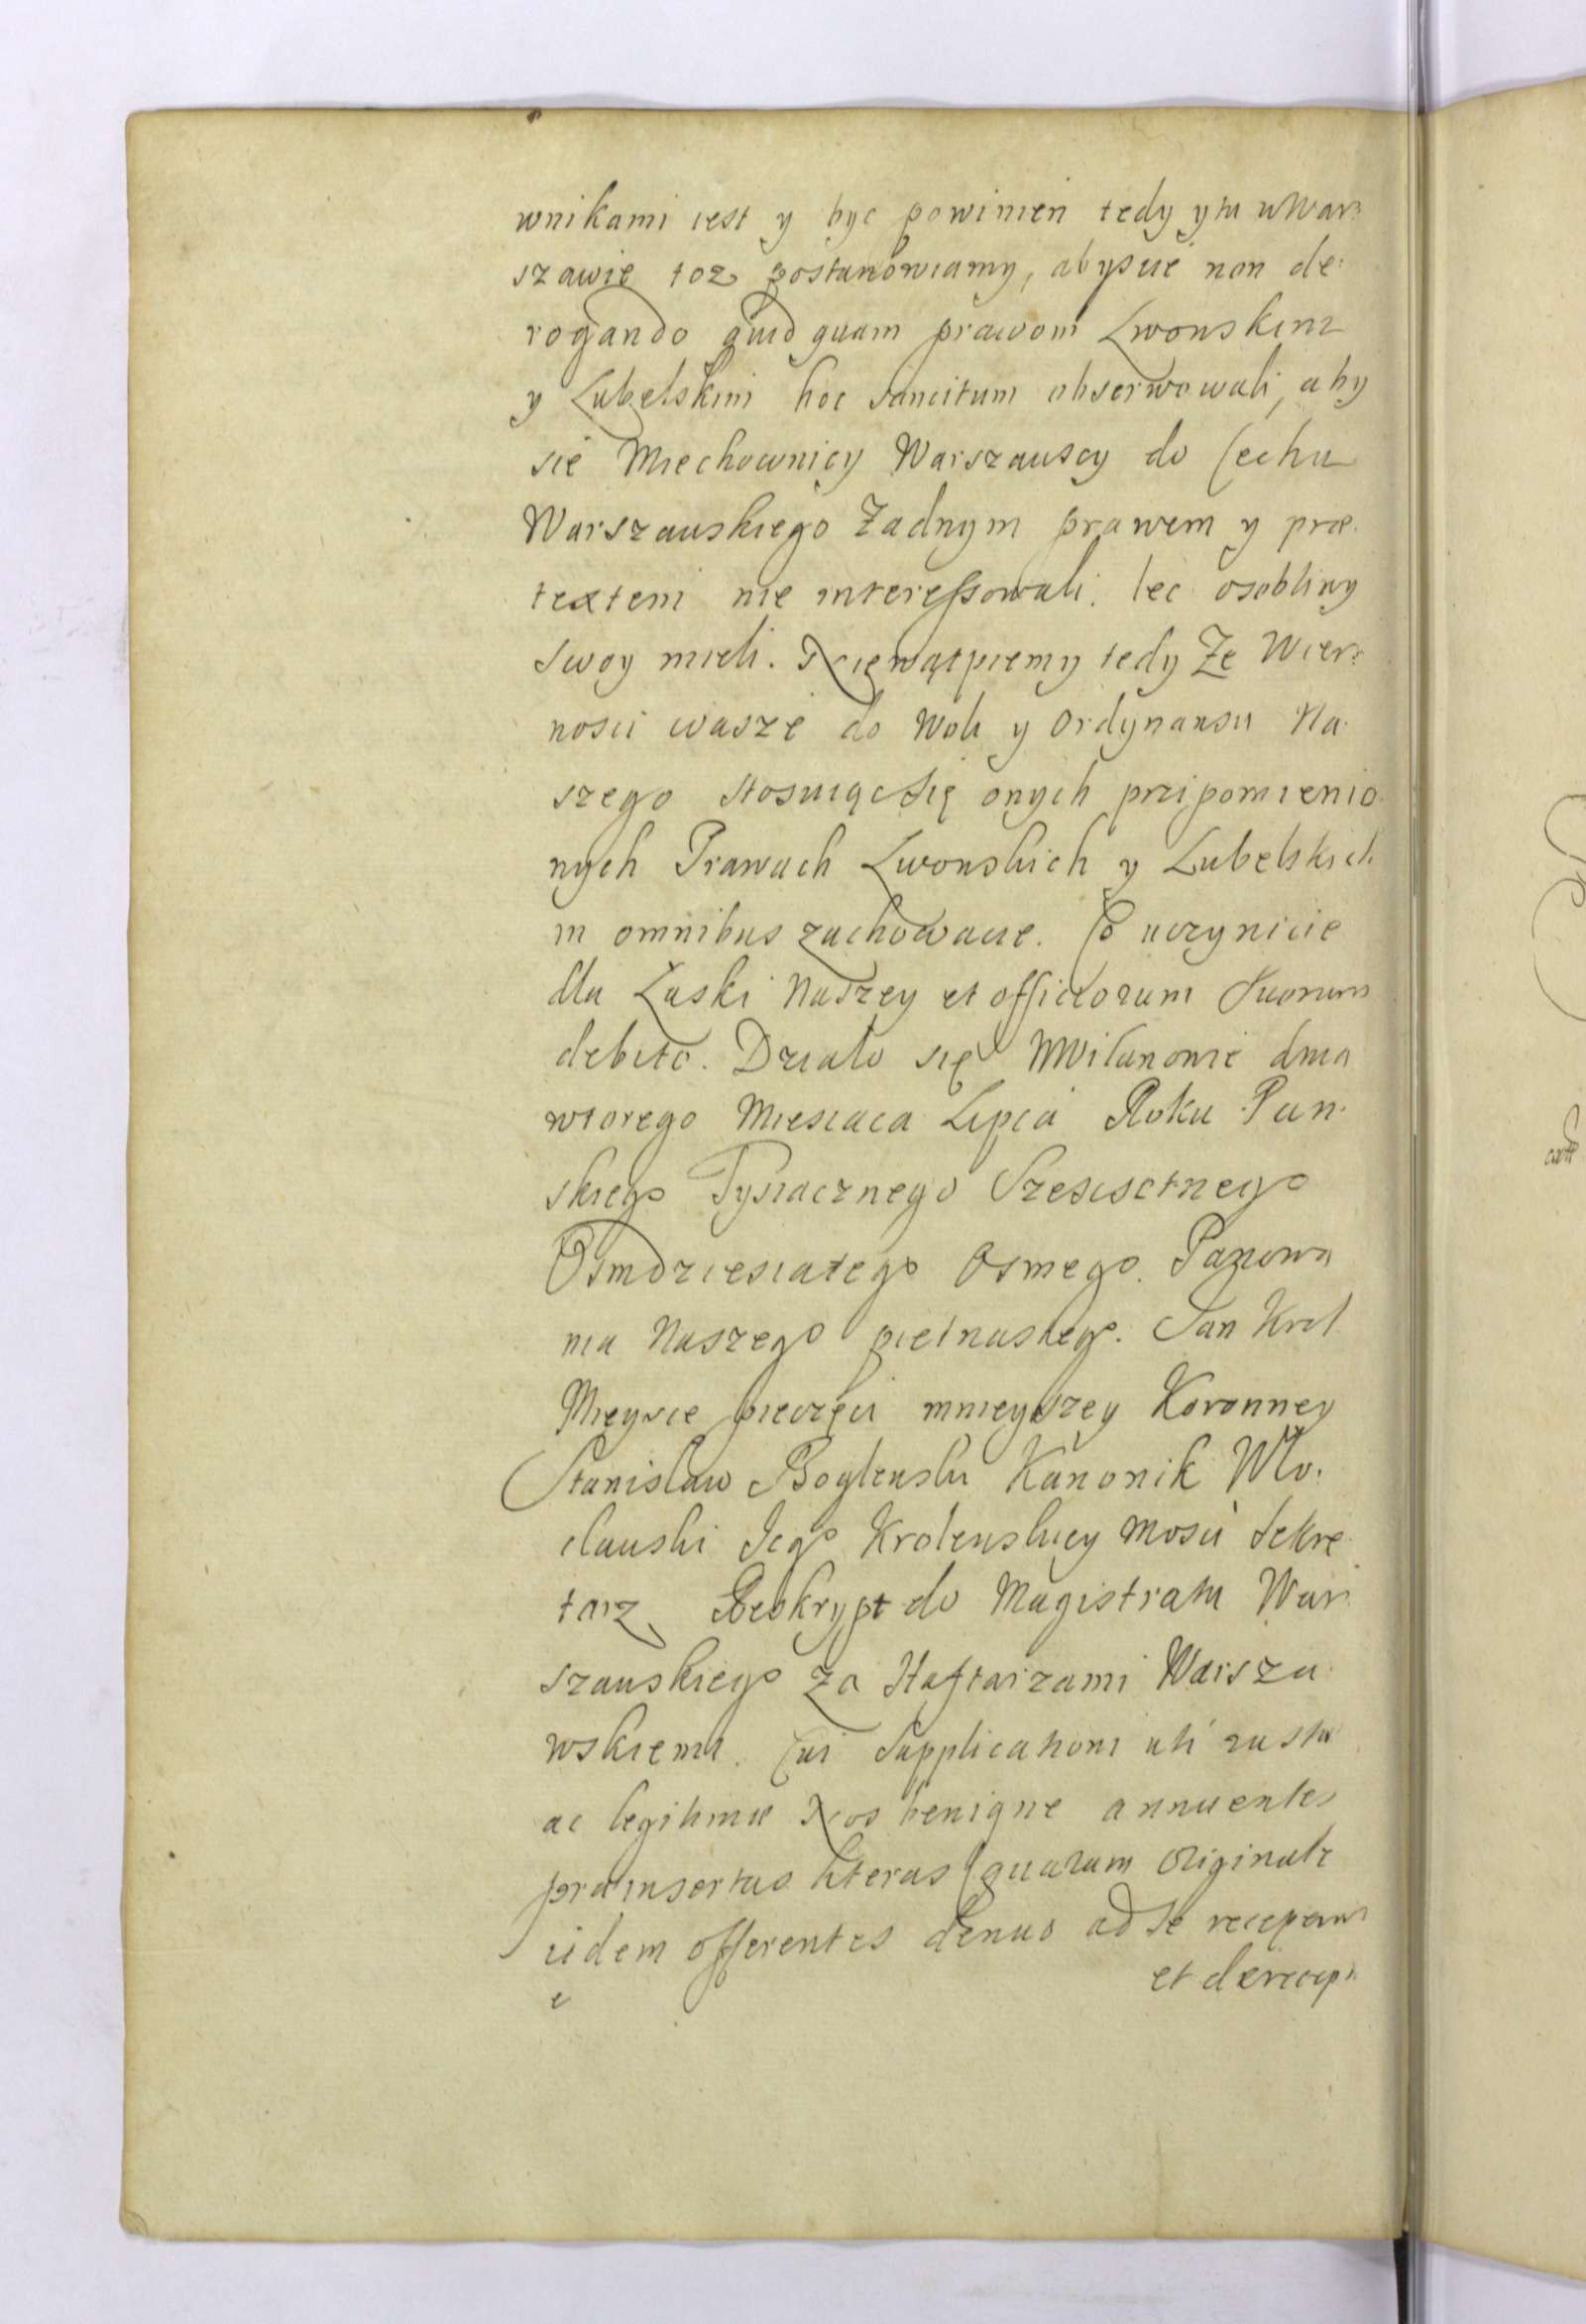 wnikami iest y byc powinien tedy y tu w War:
szawie toz postanowiamy, abyscie non de:
rogando quid quam prawom Lwonskim
y Lubelskim hoc sancitum obserwowali, aby
sie Miechownicy Warszauscy do Cechu
Warszauskiego Żadnym prawem y præ:
textem nie interessowali. lec osobliwy
swoy mieli. Niewątpiemy tedy Że Wier:
nosci wasze do Woli y Ordynansu Na:
szego stosuiąc się onych przipomienio:
nych Prawach Lwonskich y Lubelskich
in omnibus zachowacie. Co uczynicie
dla Łaski Naszey et officiorum suorum
debito. Działo się w Wilanowie dnia
wtorego Miesiaca Lipca Roku Pan:
skiego Tysiacznego Szescsetnego
Osmdziesiatego Osmego. Panowa
nia Naszego pietnastego. Jan Krol
Mieysce pieczęci mnieyszey Koronney
Stanislaw Boglenski Kanonik Wło:
clauski Jego Krolenskiey Mosci Sekre
tarz Reskrypt do Magistratu War
szauskiego za Haftarzami Warsza
wskiemi. Cui Supplicationi uti iustæ
ac legitimæ Nos benigne annuentes
præinsertas literas (quarum Originale
iidem offerentes denuo ad se receperunt
et de recep: